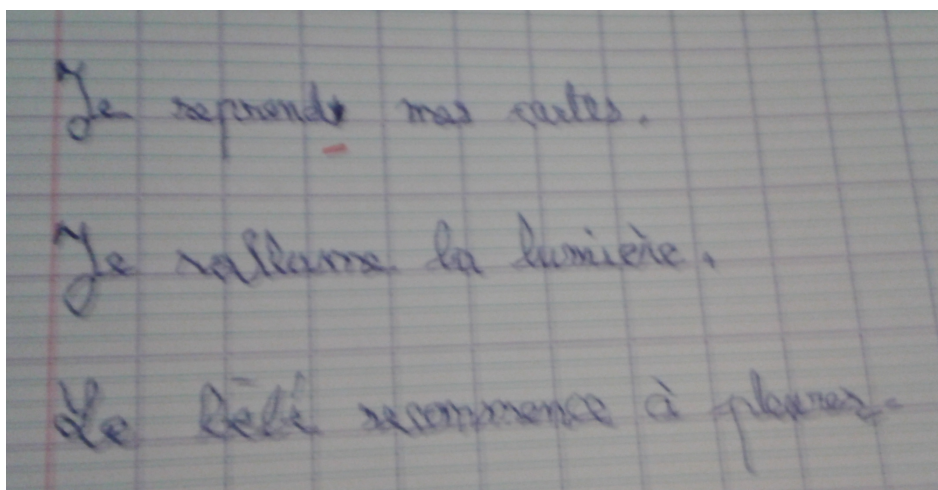 Je reprends mes cartes.
Je rallume la lumière.
Le bébé recommence à pleurer.